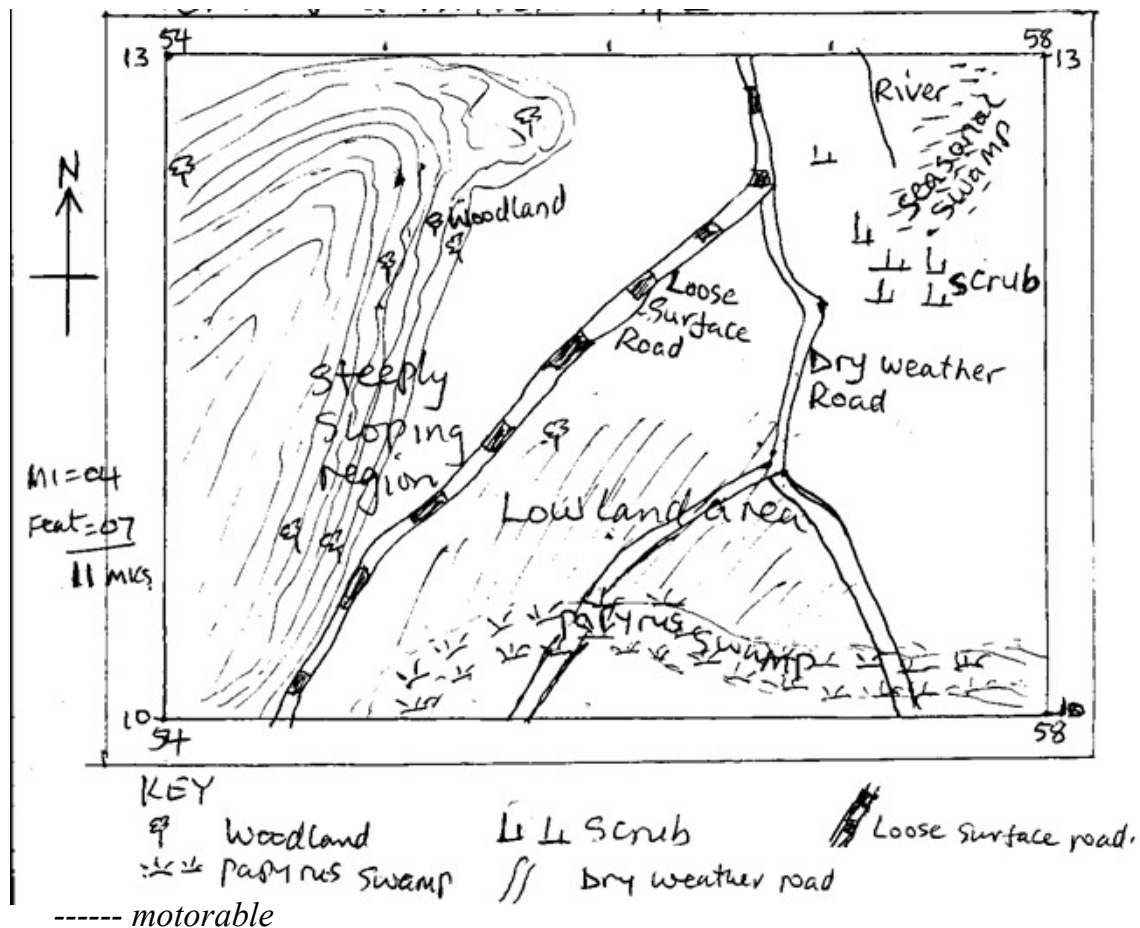 54 58
13 13
River
Seasonal
swamp
N
Woodland
scrub
Loose
Surface
Road
Dry weather
Road
Steeply
Sloping
region
M1=04
Feat=07
11 mks
Lowland area
papyrus swamp
10 10
54 58
KEY
Woodland
Scrub
Loose surface road.
papyrus swamp
Dry weather road
------ motorable